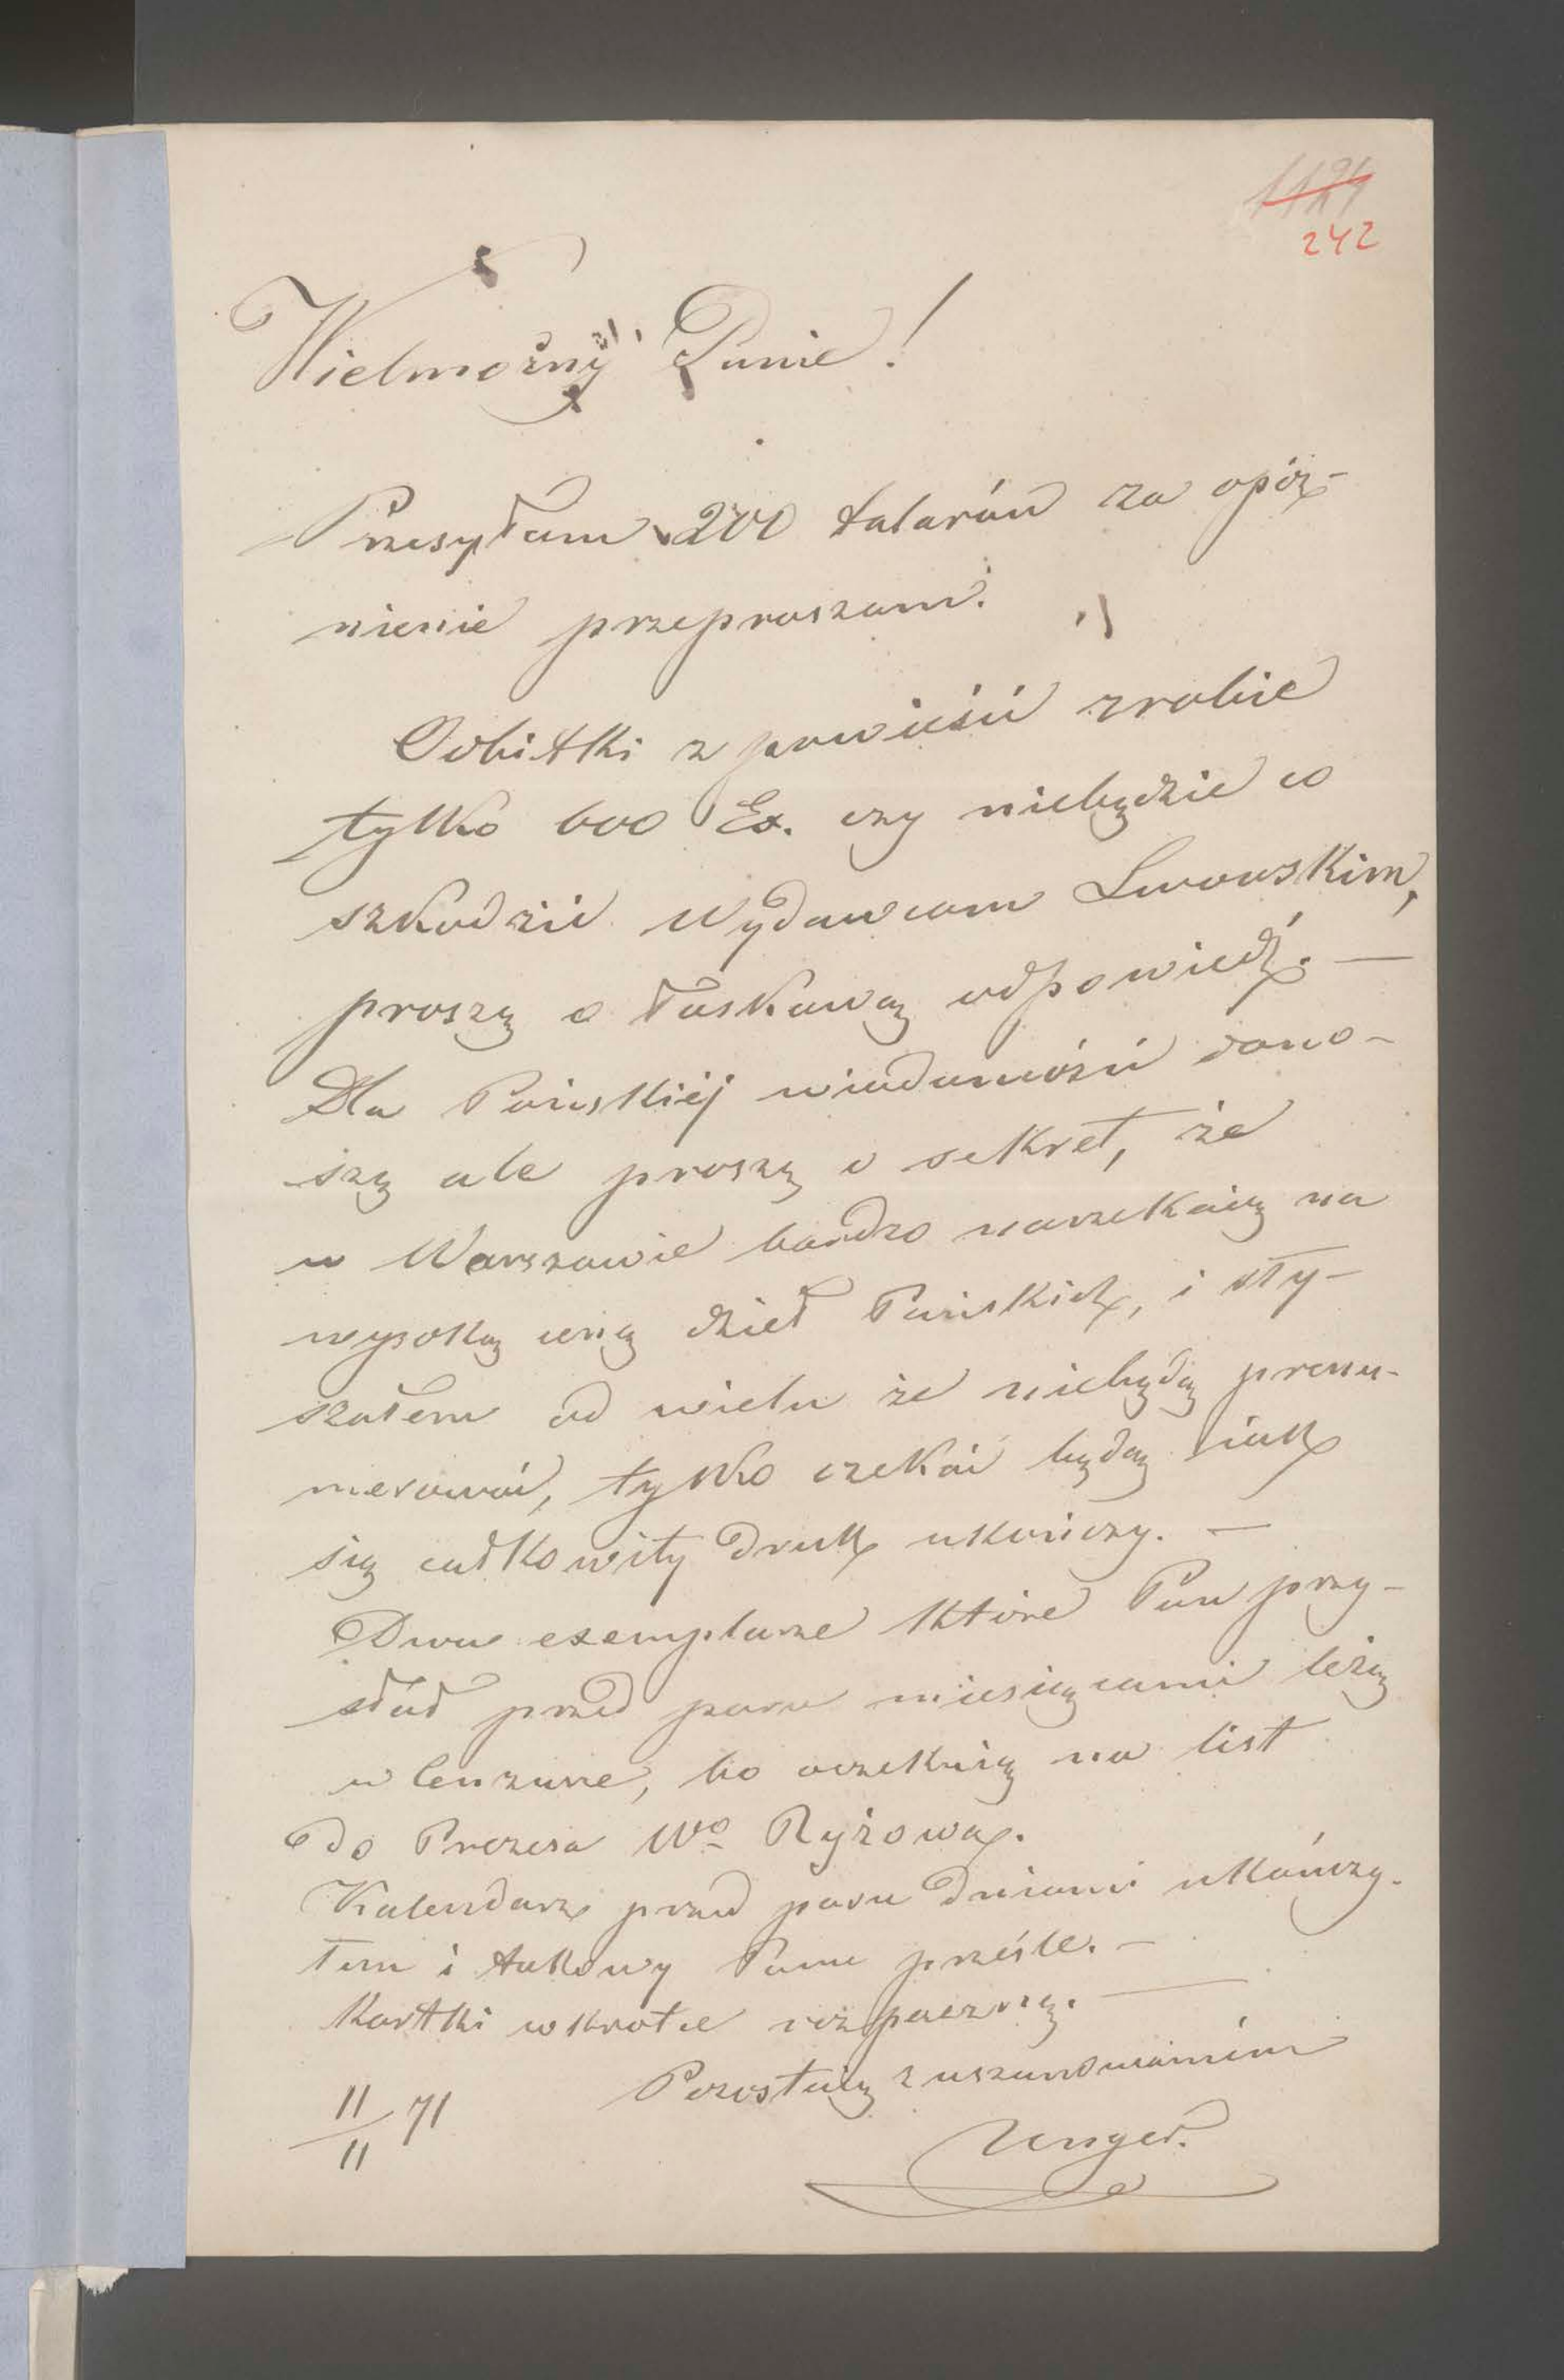 1124
242
Wielmożny Panie!
Przesyłam 200 talarów za opóź-
nienie przepraszam.
Odbitki z powieści zrobie
tylko 600 Ex. czy niebędzie to
szkodzić Wydawcom Lwowskim,
proszę o łaskawą odpowiedź. —
Dla Pańskiéj wiadomości dono-
szę ale proszę o sekret, że
w Warszawie bardzo narzekaią na
wysoką cenę dzieł Pańskich, i sły-
szałem od wielu że niebędą prenu-
merować, tylko czekać będą iak
się całkowity druk ukończy. —
Dwa exemplarze które Pan przy-
słał przed paru miesiącami leżą
w Cenzurze, bo oczekuią na list
do Prezesa Wo Ryżowa.
Kalendarz przed paru dniami ukończy-
łem i takowy Panu prześle. —
Kartki wkrotce rozpoczną. —
Pozostaię z uszanowaniem
11/11 71
Unger.